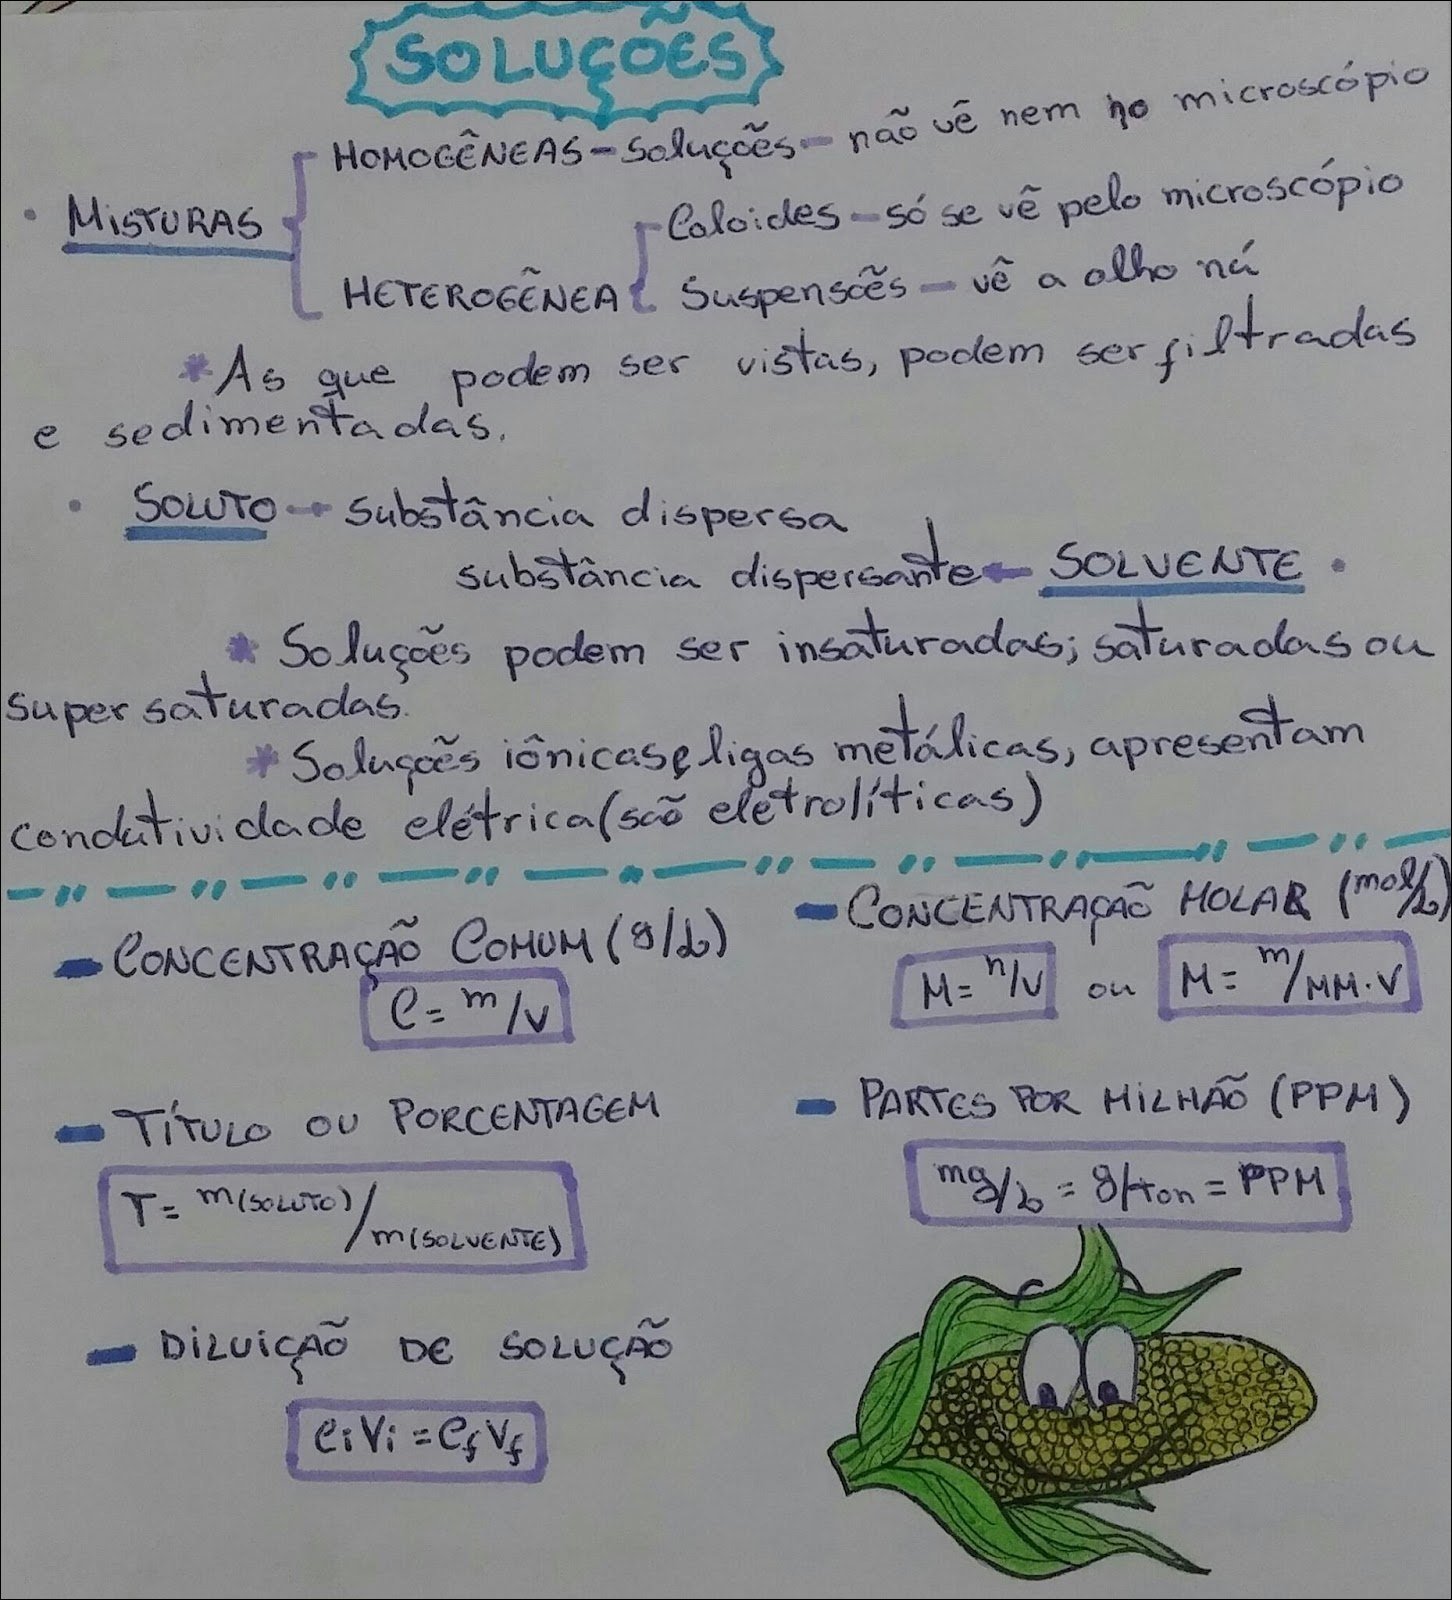 SOLUÇÕES
• MISTURAS
HOMOGÊNEAS - soluções - não vê nem no microscópio
HETEROGÊNEA
Coloides - só se vê pelo microscópio
Suspensões - vê a olho nú
* As que podem ser vistas, podem ser filtradas
e sedimentadas.
• SOLUTO → substância dispersa
substância dispersante ← SOLVENTE •
* Soluções podem ser insaturadas; saturadas ou
supersaturadas.
* Soluções iônicas e ligas metálicas, apresentam
condutividade elétrica (são eletrolíticas)
- CONCENTRAÇÃO COMUM (g/L)
C = m/V
- CONCENTRAÇÃO MOLAR (mol/L)
M = n/V ou M = m/MM.V
- TÍTULO OU PORCENTAGEM
T = m(SOLUTO)/m(SOLVENTE)
- PARTES POR MILHÃO (PPM)
mg/L = g/ton = PPM
- DILUIÇÃO DE SOLUÇÃO
CiVi = CfVf